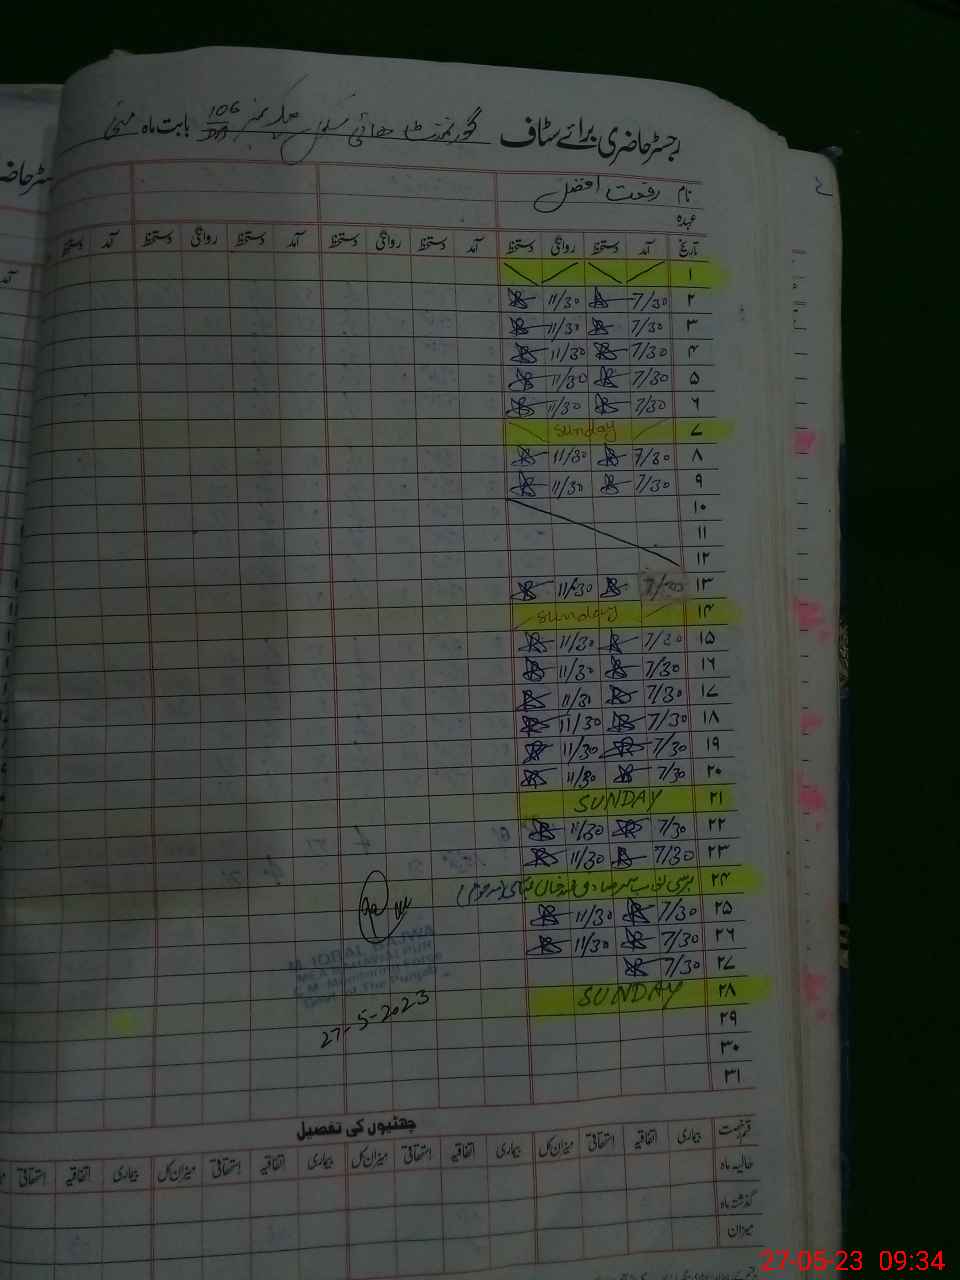 رجسٹر حاضری برائے سٹاف گورنمنٹ ہائی سکول چک نمبر 106 بابت ماہ مئی
نام رفعت افضل
عہدہ
تاریخ آمد دستخط روانگی دستخط آمد دستخط روانگی دستخط آمد دستخط روانگی دستخط آمد
۱
۲ 7/30 11/30
۳ 7/30 11/30
۴ 7/30 11/30
۵ 7/30 11/30
۶ 7/30 11/30
۷ Sunday
۸ 7/30 11/30
۹ 7/30 11/30
۱۰
۱۱
۱۲
۱۳ 7/30 11/30
۱۴ Sunday
۱۵ 7/30 11/30
۱۶ 7/30 11/30
۱۷ 7/30 11/30
۱۸ 7/30 11/30
۱۹ 7/30 11/30
۲۰ 7/30 11/30
۲۱ SUNDAY
۲۲ 7/30 11/30
۲۳ 7/30 11/30
۲۴ برسی نواب سر صادق محمد خان عباسی (مرحوم)
۲۵ 7/30 11/30
۲۶ 7/30 11/30
۲۷ 7/30
۲۸ SUNDAY
27-5-2023
۲۹
۳۰
۳۱
چھٹیوں کی تفصیل
قسم رخصت بیماری اتفاقیہ استحقاقی میزان کل بیماری اتفاقیہ استحقاقی میزان کل بیماری اتفاقیہ استحقاقی میزان کل بیماری اتفاقیہ استحقاقی
حالیہ ماہ
گذشتہ ماہ
میزان
27-05-23 09:34